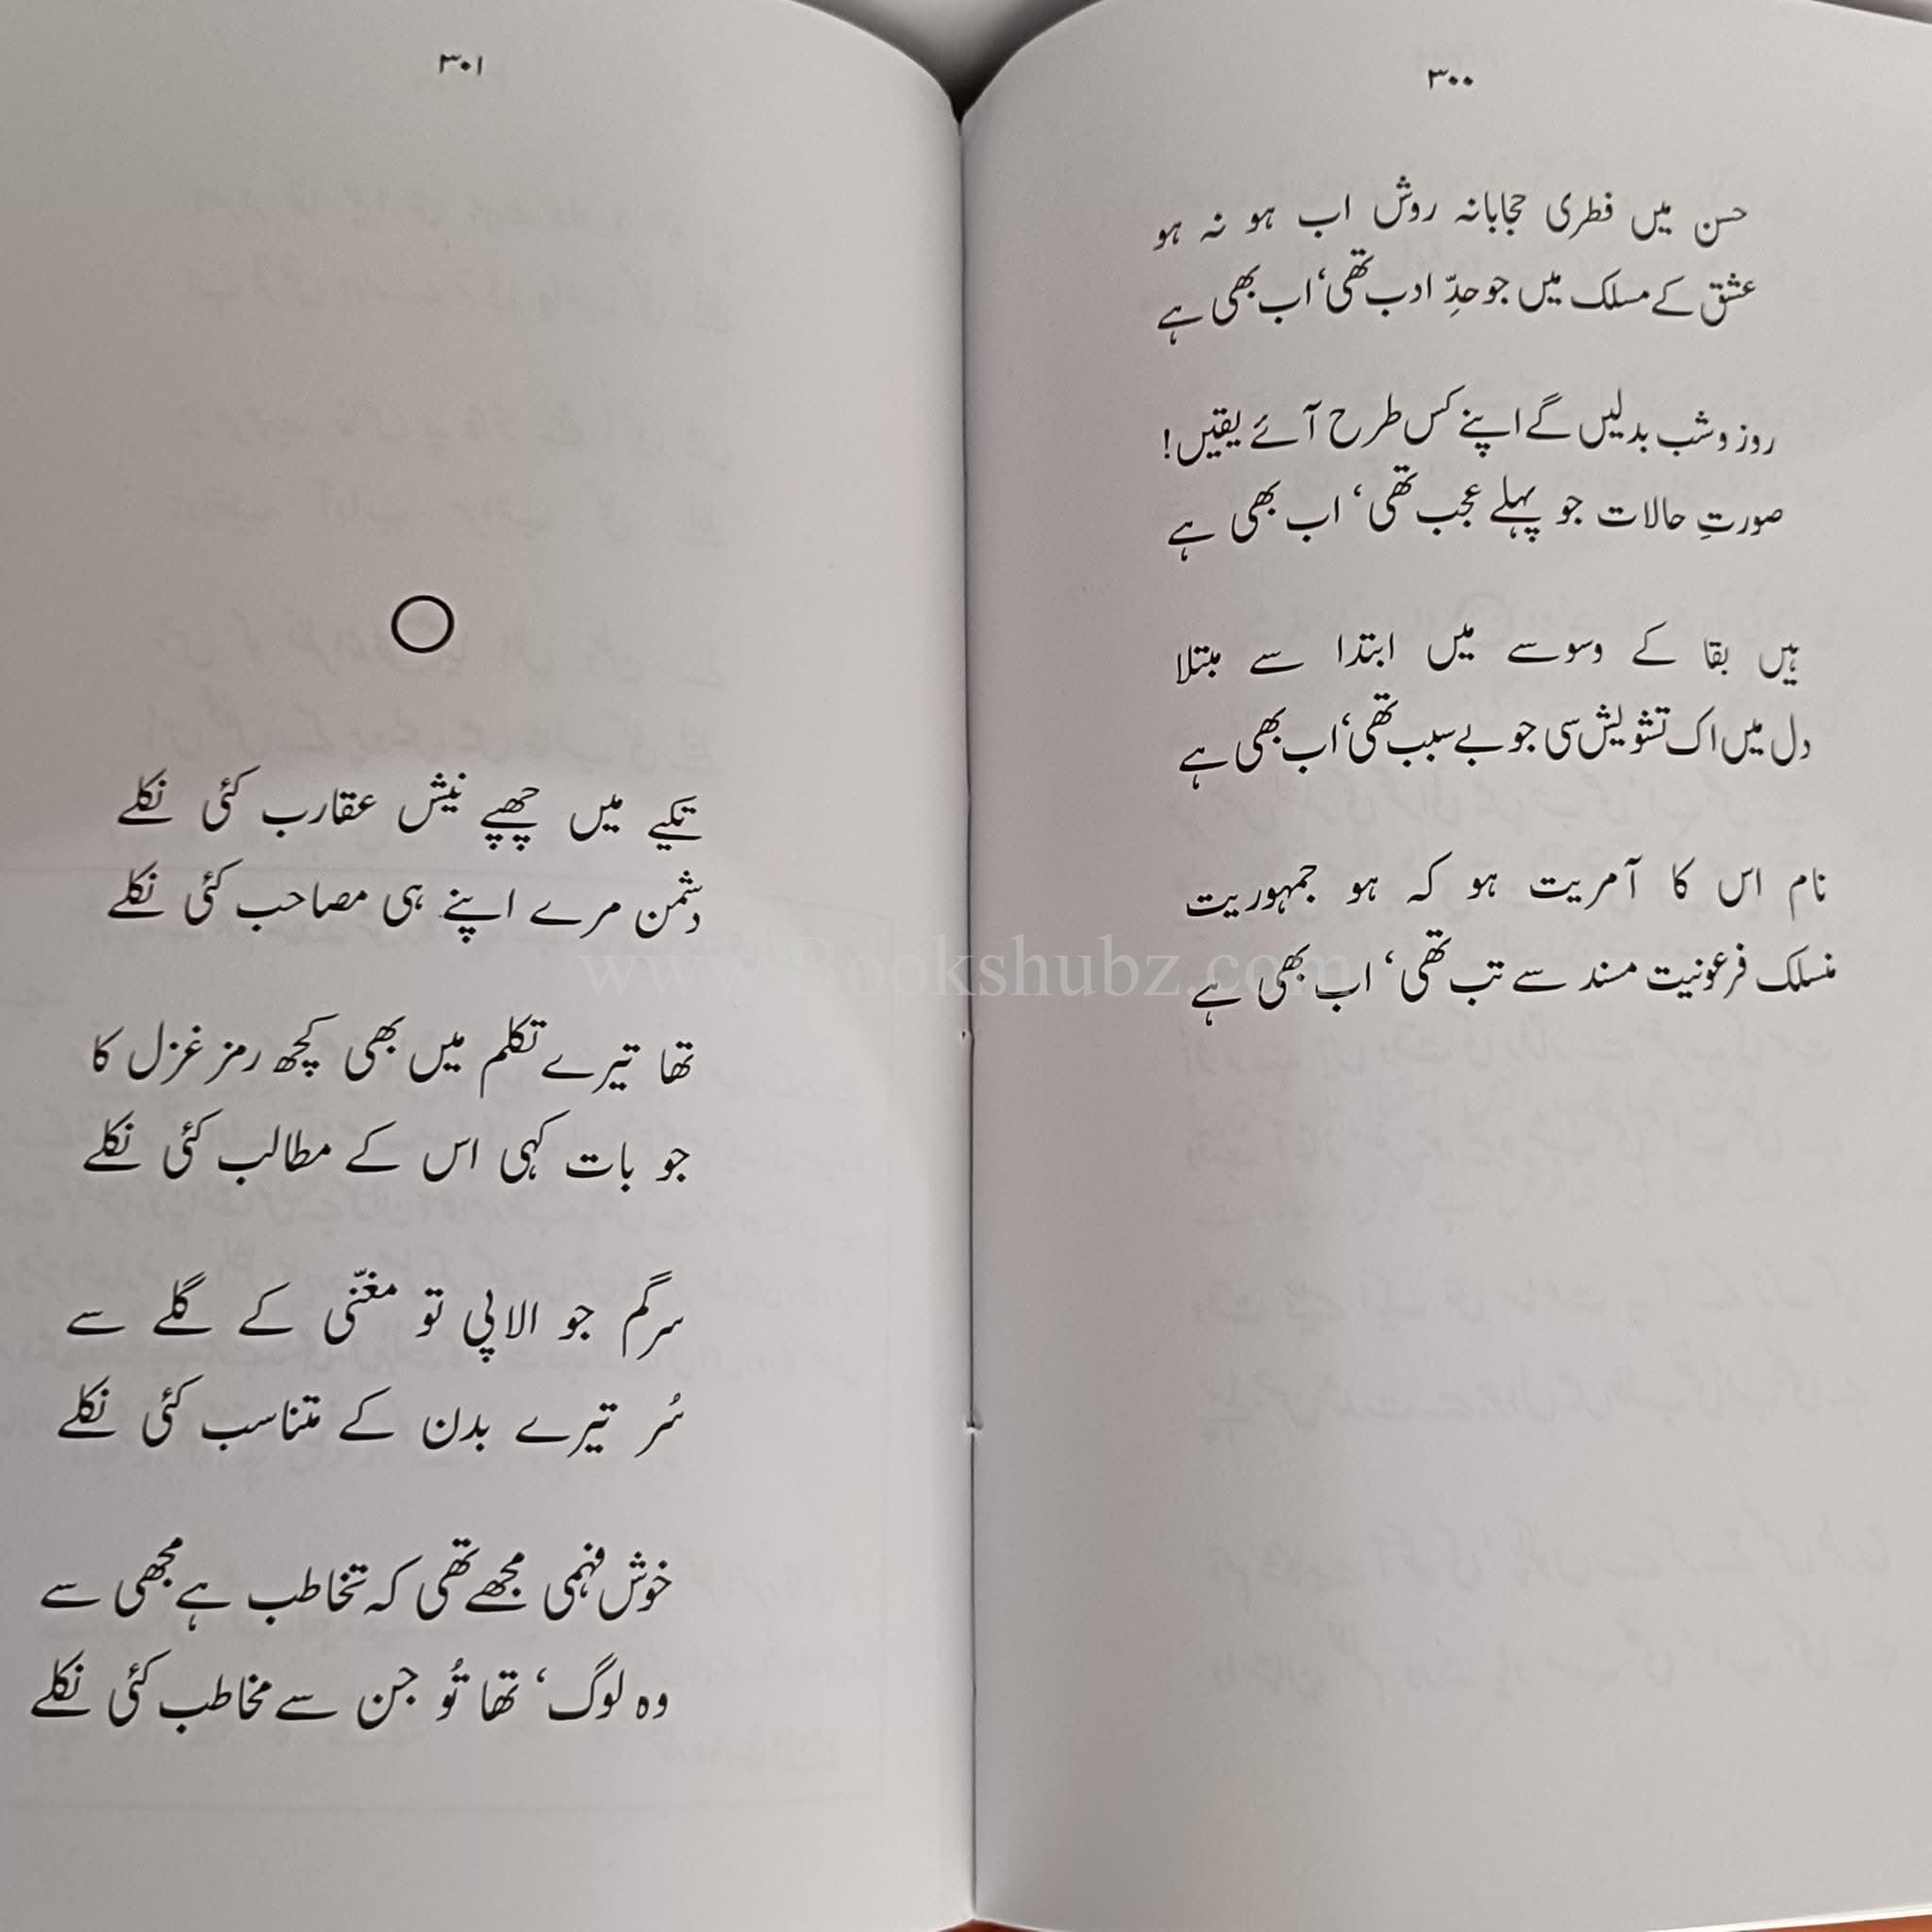 ۳۰۰
حسن میں فطری حجابانہ روش اب ہو نہ ہو
عشق کے مسلک میں جو حدِّ ادب تھی، اب بھی ہے
روز و شب بدلیں گے اپنے کس طرح آئے یقیں!
صورتِ حالات جو پہلے عجب تھی، اب بھی ہے
ہیں بقا کے وسوسے میں ابتدا سے مبتلا
دل میں اک تشویش سی جو بے سبب تھی، اب بھی ہے
نام اس کا آمریت ہو کہ ہو جمہوریت
منسلک فرعونیت مسند سے تب تھی، اب بھی ہے
۳۰۱
تکیے میں چھپے نیش عقارب کئی نکلے
دشمن مرے اپنے ہی مصاحب کئی نکلے
تھا تیرے تکلم میں بھی کچھ رمز غزل کا
جو بات کہی اس کے مطالب کئی نکلے
سرگم جو الاپی تو مغنّی کے گلے سے
سُر تیرے بدن کے متناسب کئی نکلے
خوش فہمی مجھے تھی کہ تخاطب ہے مجھی سے
وہ لوگ، تھا تُو جن سے مخاطب کئی نکلے
www.Bookshubz.com